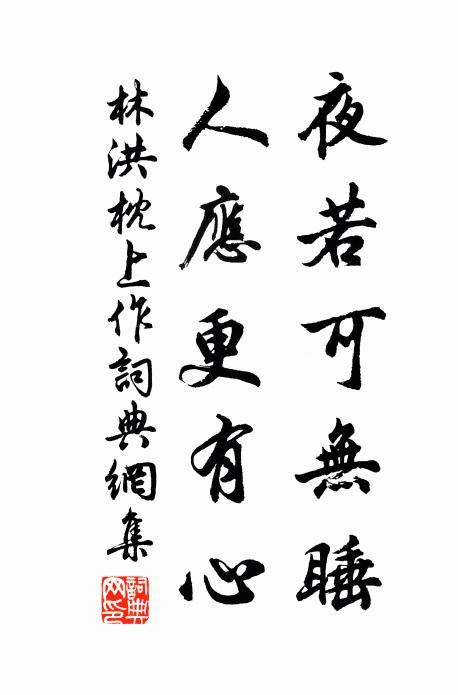 夜若可無睡
人應更有心
林洪枕上作詞典網集
詞典網印